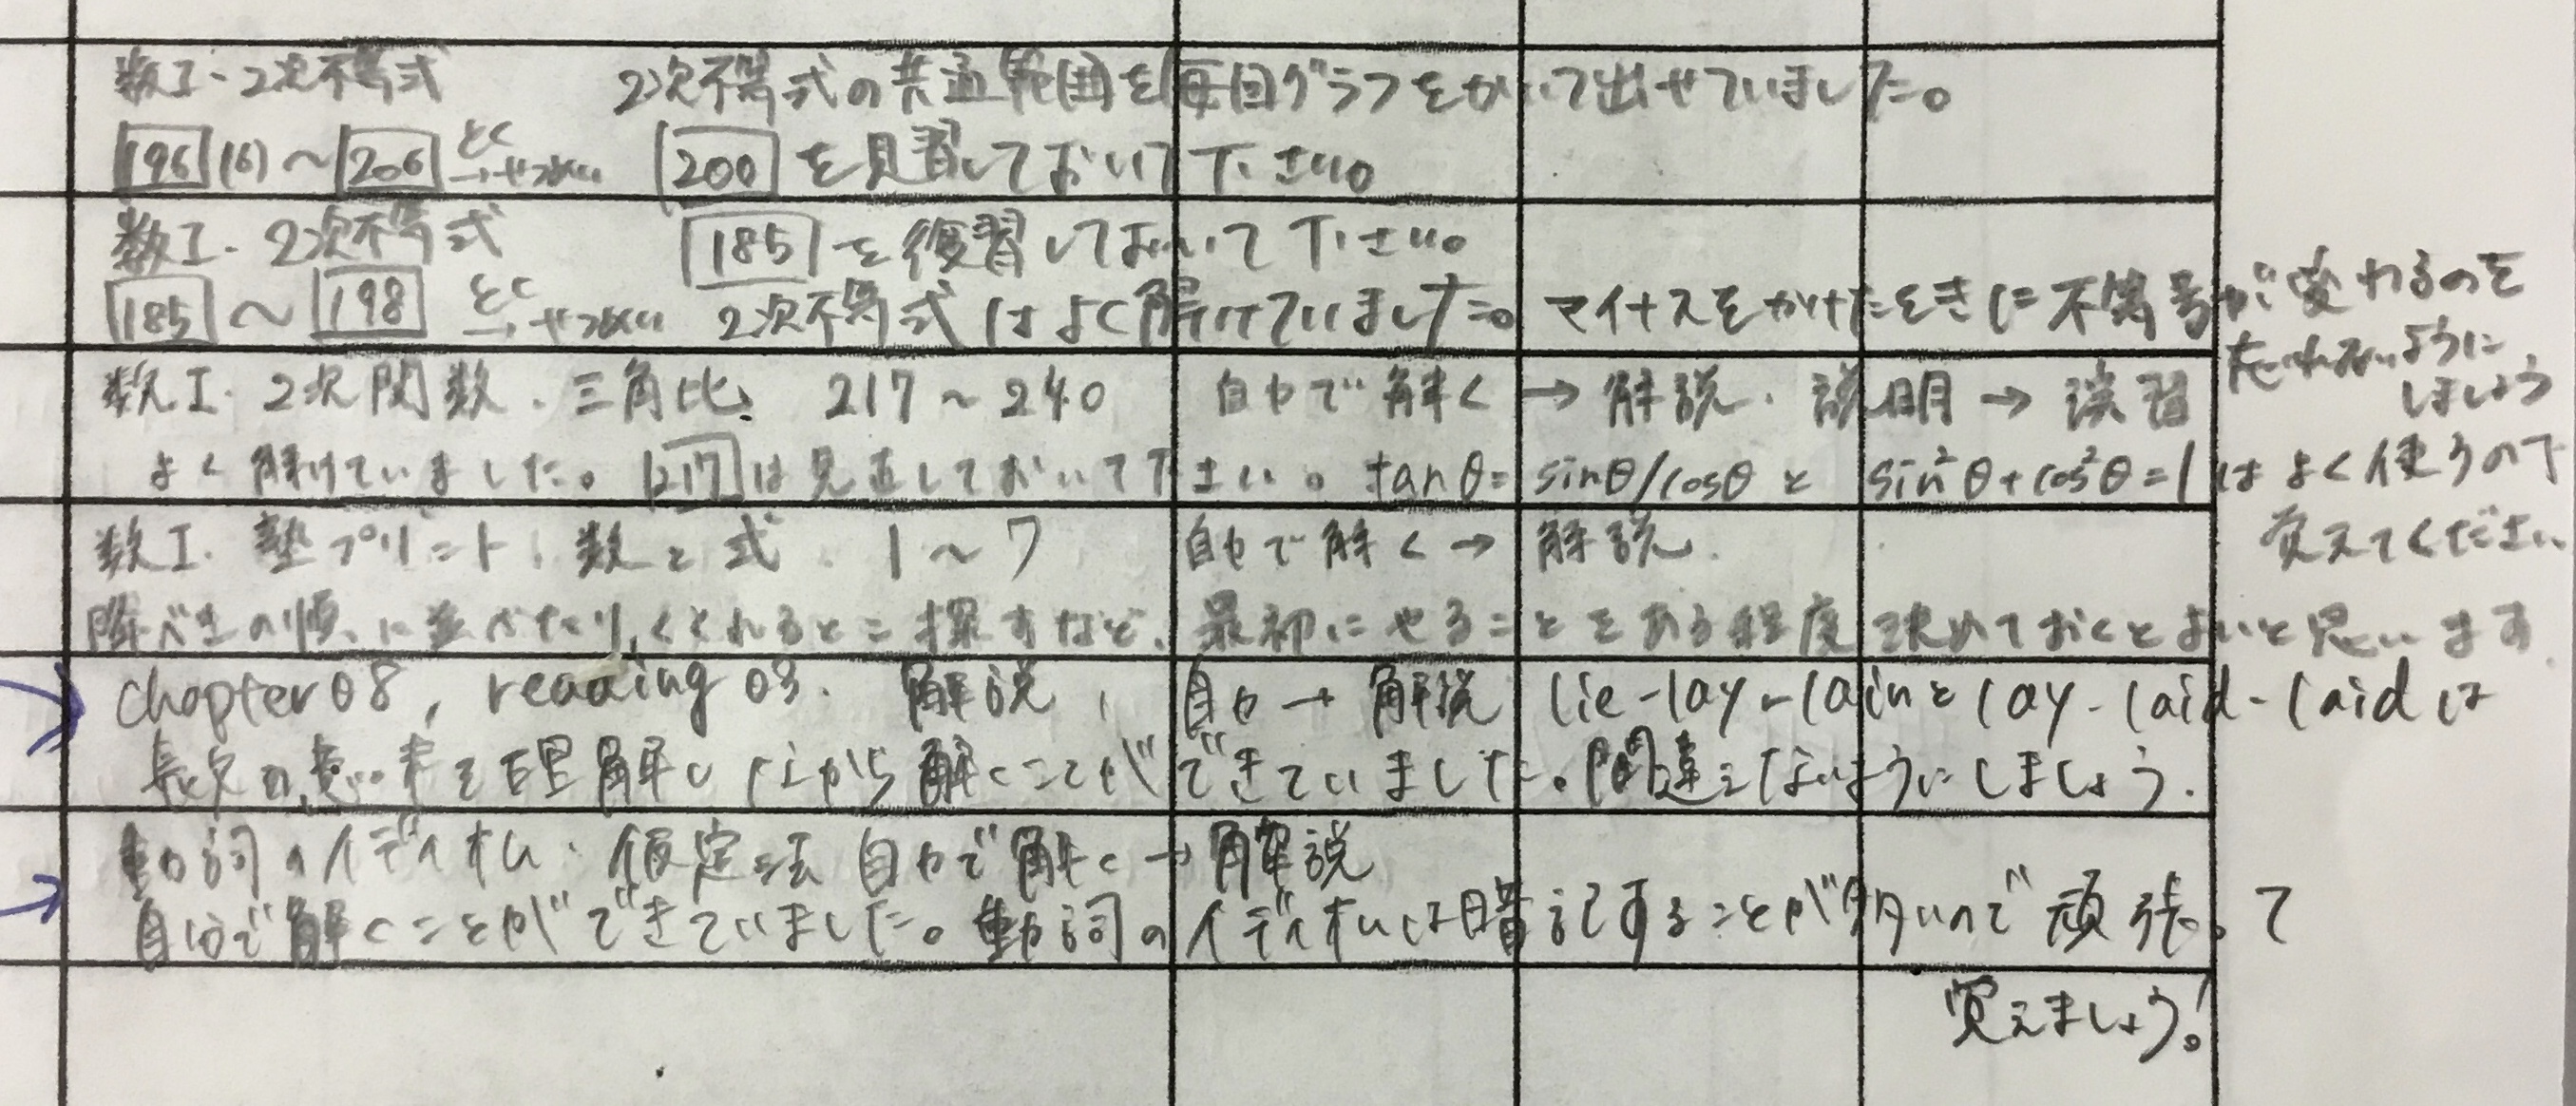 数I・2次不等式　2次不等式の共通範囲を毎回グラフをかいて出せていました。
196 (6) ～ 206 とく→せつめい　200 を見習しておいて下さい。
数I・2次不等式　185 を復習しておいて下さい。
185 ～ 198 とく→せつめい　2次不等式はよく解けていました。マイナスをかけたときに不等号が変わるのを
忘れないように
しましょう
数I・2次関数・三角比、217～240　自力で解く→解説・説明→演習
よく解けていました。217は見直しておいて下さい。tanθ=sinθ/cosθと sin²θ+cos²θ=1はよく使うので
覚えてください
数I・塾プリント・数と式・1～7　自力で解く→解説
降べきの順に並べたり、くくれるとこ探すなど、最初にやることをある程度決めておくとよいと思います。
chapter08, reading 03. 解説, 自力→解説 lie-lay-lainとlay-laid-laidは
長文の意味を理解しながら解くことができていました。間違えないようにしましょう.
動詞のイディオム・仮定法 自力で解く→解説
自分で解くことができていました。動詞のイディオムは暗記することが多いので頑張って
覚えましょう!